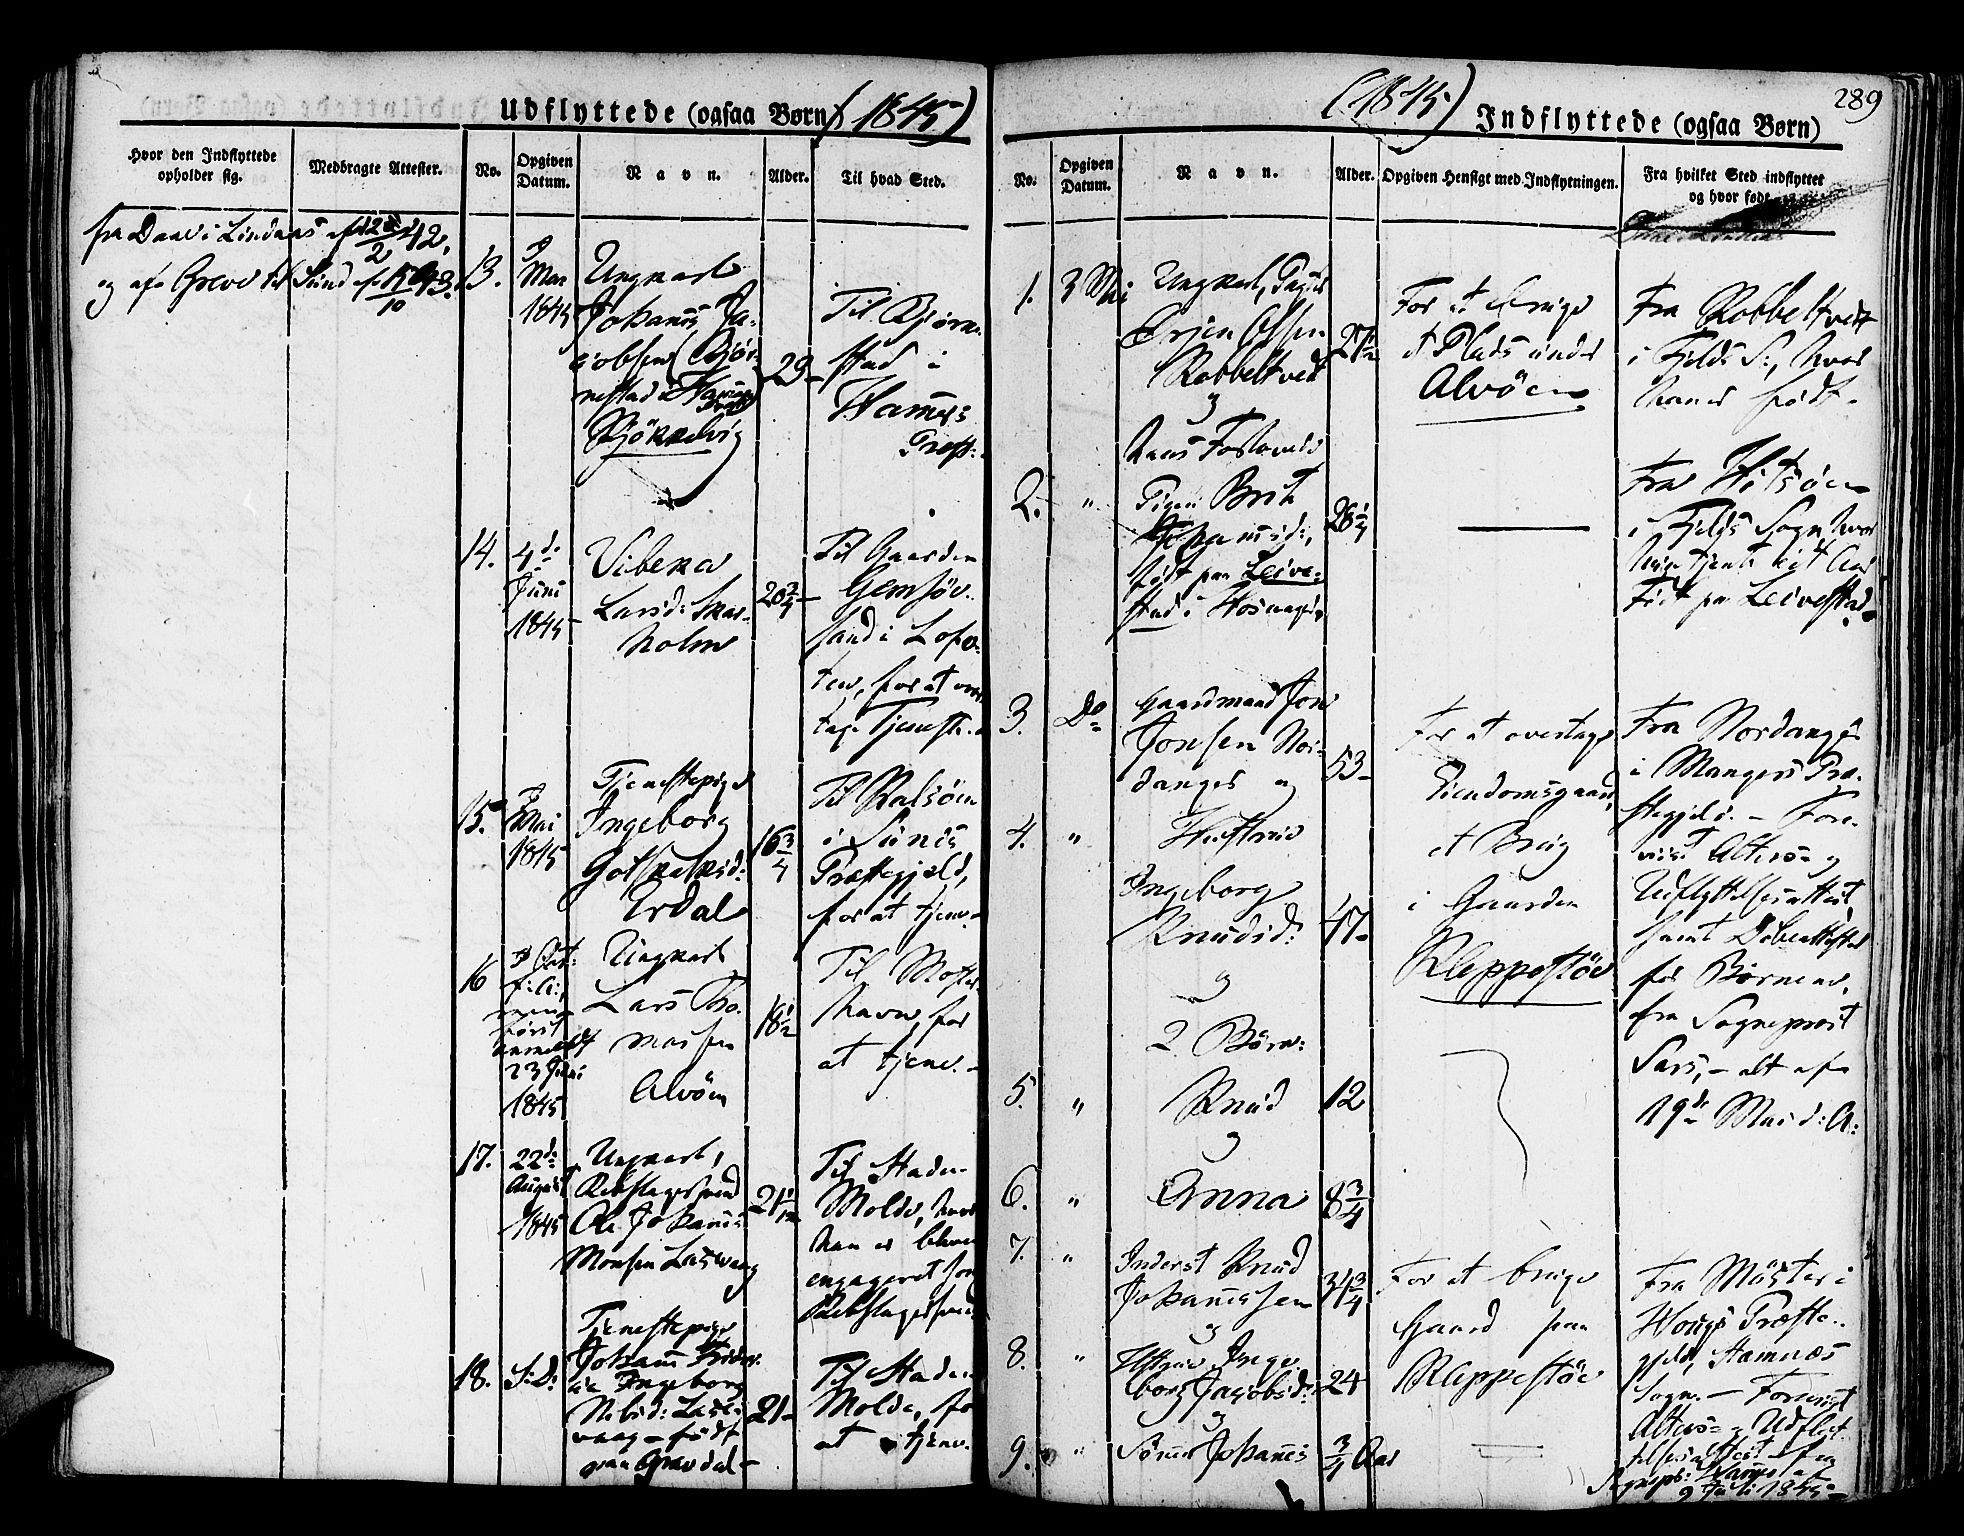 Udflyttede (ogsaa Børn) (1845)
Hvor den Indflyttede opholder sig.
Medbragte Attester.
No.
Opgiven Datum.
Navn.
Alder.
Til hvad Sted.
fra Daae i Lindaas af 12/2 42,
og afs Greve til Sund
13.
Mai
1845
Ungkarl
Johannes Ja-
cobsen (Bjør-
nestad i Hammers
Bjökkelvig
29
Til Bjørne-
stad i
Hammers
Præst:
14.
4de
Juni
1845
Vibeka
Larsd: Skar-
holm
20 3/4
Til Gaarden
Gemsöe-
sand i Lofo-
ten, for at over-
tage Tjeneste.
15.
Mai
1845
Tjenestepige
Ingeborg
Gotskalksd:
Urdal
16 3/4
Til Kalsöen
i Sunds
Præstegjeld,
for at tjene.
16
først
anmeldt
23 Juni
1845
Ungkarl
Lars Tho-
massen
Alvöen
18 1/2
Til Moster-
havn, for
at tjene.-
17.
22de
August
1845
Ungkarl,
Rebslagersvend
Ole Johannes
Monsen Laxevaag
21 1/12
Til Staden
Molde, hvor
han er bleven
engageret som
Rebslagersvend
18.
S: D:
Tjenestepige
Ingeborg
Nilsd: Laxe-
vaag - født
paa Gravdal -
21-
Til Staden
Molde, for
at tjene.
(1845) Indflyttede (ogsaa Børn)
289
No.
Opgiven Datum.
Navn.
Alder.
Opgiven Hensigt med Indflytningen.
Fra hvilket Sted indflyttet og hvor født
1.
3 Mai
Ungkarl,
Örjen Olsen
Kobbeltvedt
27 1/2
For at bruge
et Plads under
Alvöen
Fra Kobbeltvedt
i Fjelds S:, hvor
han er født.
og
2.
"
hans Forlovede
Pigen Brita
Johannesd:,
født paa Leive-
stad i Hosanger
26 1/4
Fra Hitsöen
i Fjelds Sogn, hvor
hun tjente eet Aar
Født paa Leivestad
3.
Do
Gaardmand Jon
Jonsen Nor-
danger og
53-
For at overtage
Eiendomsgaard,
et Brug
i Gaarden
Kleppestöe
Fra Nordanger
i Mangers Præ-
stegjeld. - Fore-
viist Alters- og
Udflyttelsesattest,
samt Døbeattester
for Børnene,
fra Sogneprest
Sars, - alt af
19de Mai d: A:
4.
"
Hustrue
Ingeborg
Knudsd:
47-
og
2 Börn:
5.
"
Knud
12
og
6.
"
Anna
8 3/4
7.
"
Inderst Knud
Johannessen
34 3/4
For at bruge
Gaard paa
Kleppestöe
Fra Möster i
Hougs Præste-
gjeld, Hamnæs
Sogn. - Foreviist
Alters- og Udflyt-
telsesattest fra
Sognepr:
9 Juli 1845
og
8.
"
Hstrue Inge-
borg Jacobsd:
24
og
9.
"
Sönen Johannes
3/4 Aar